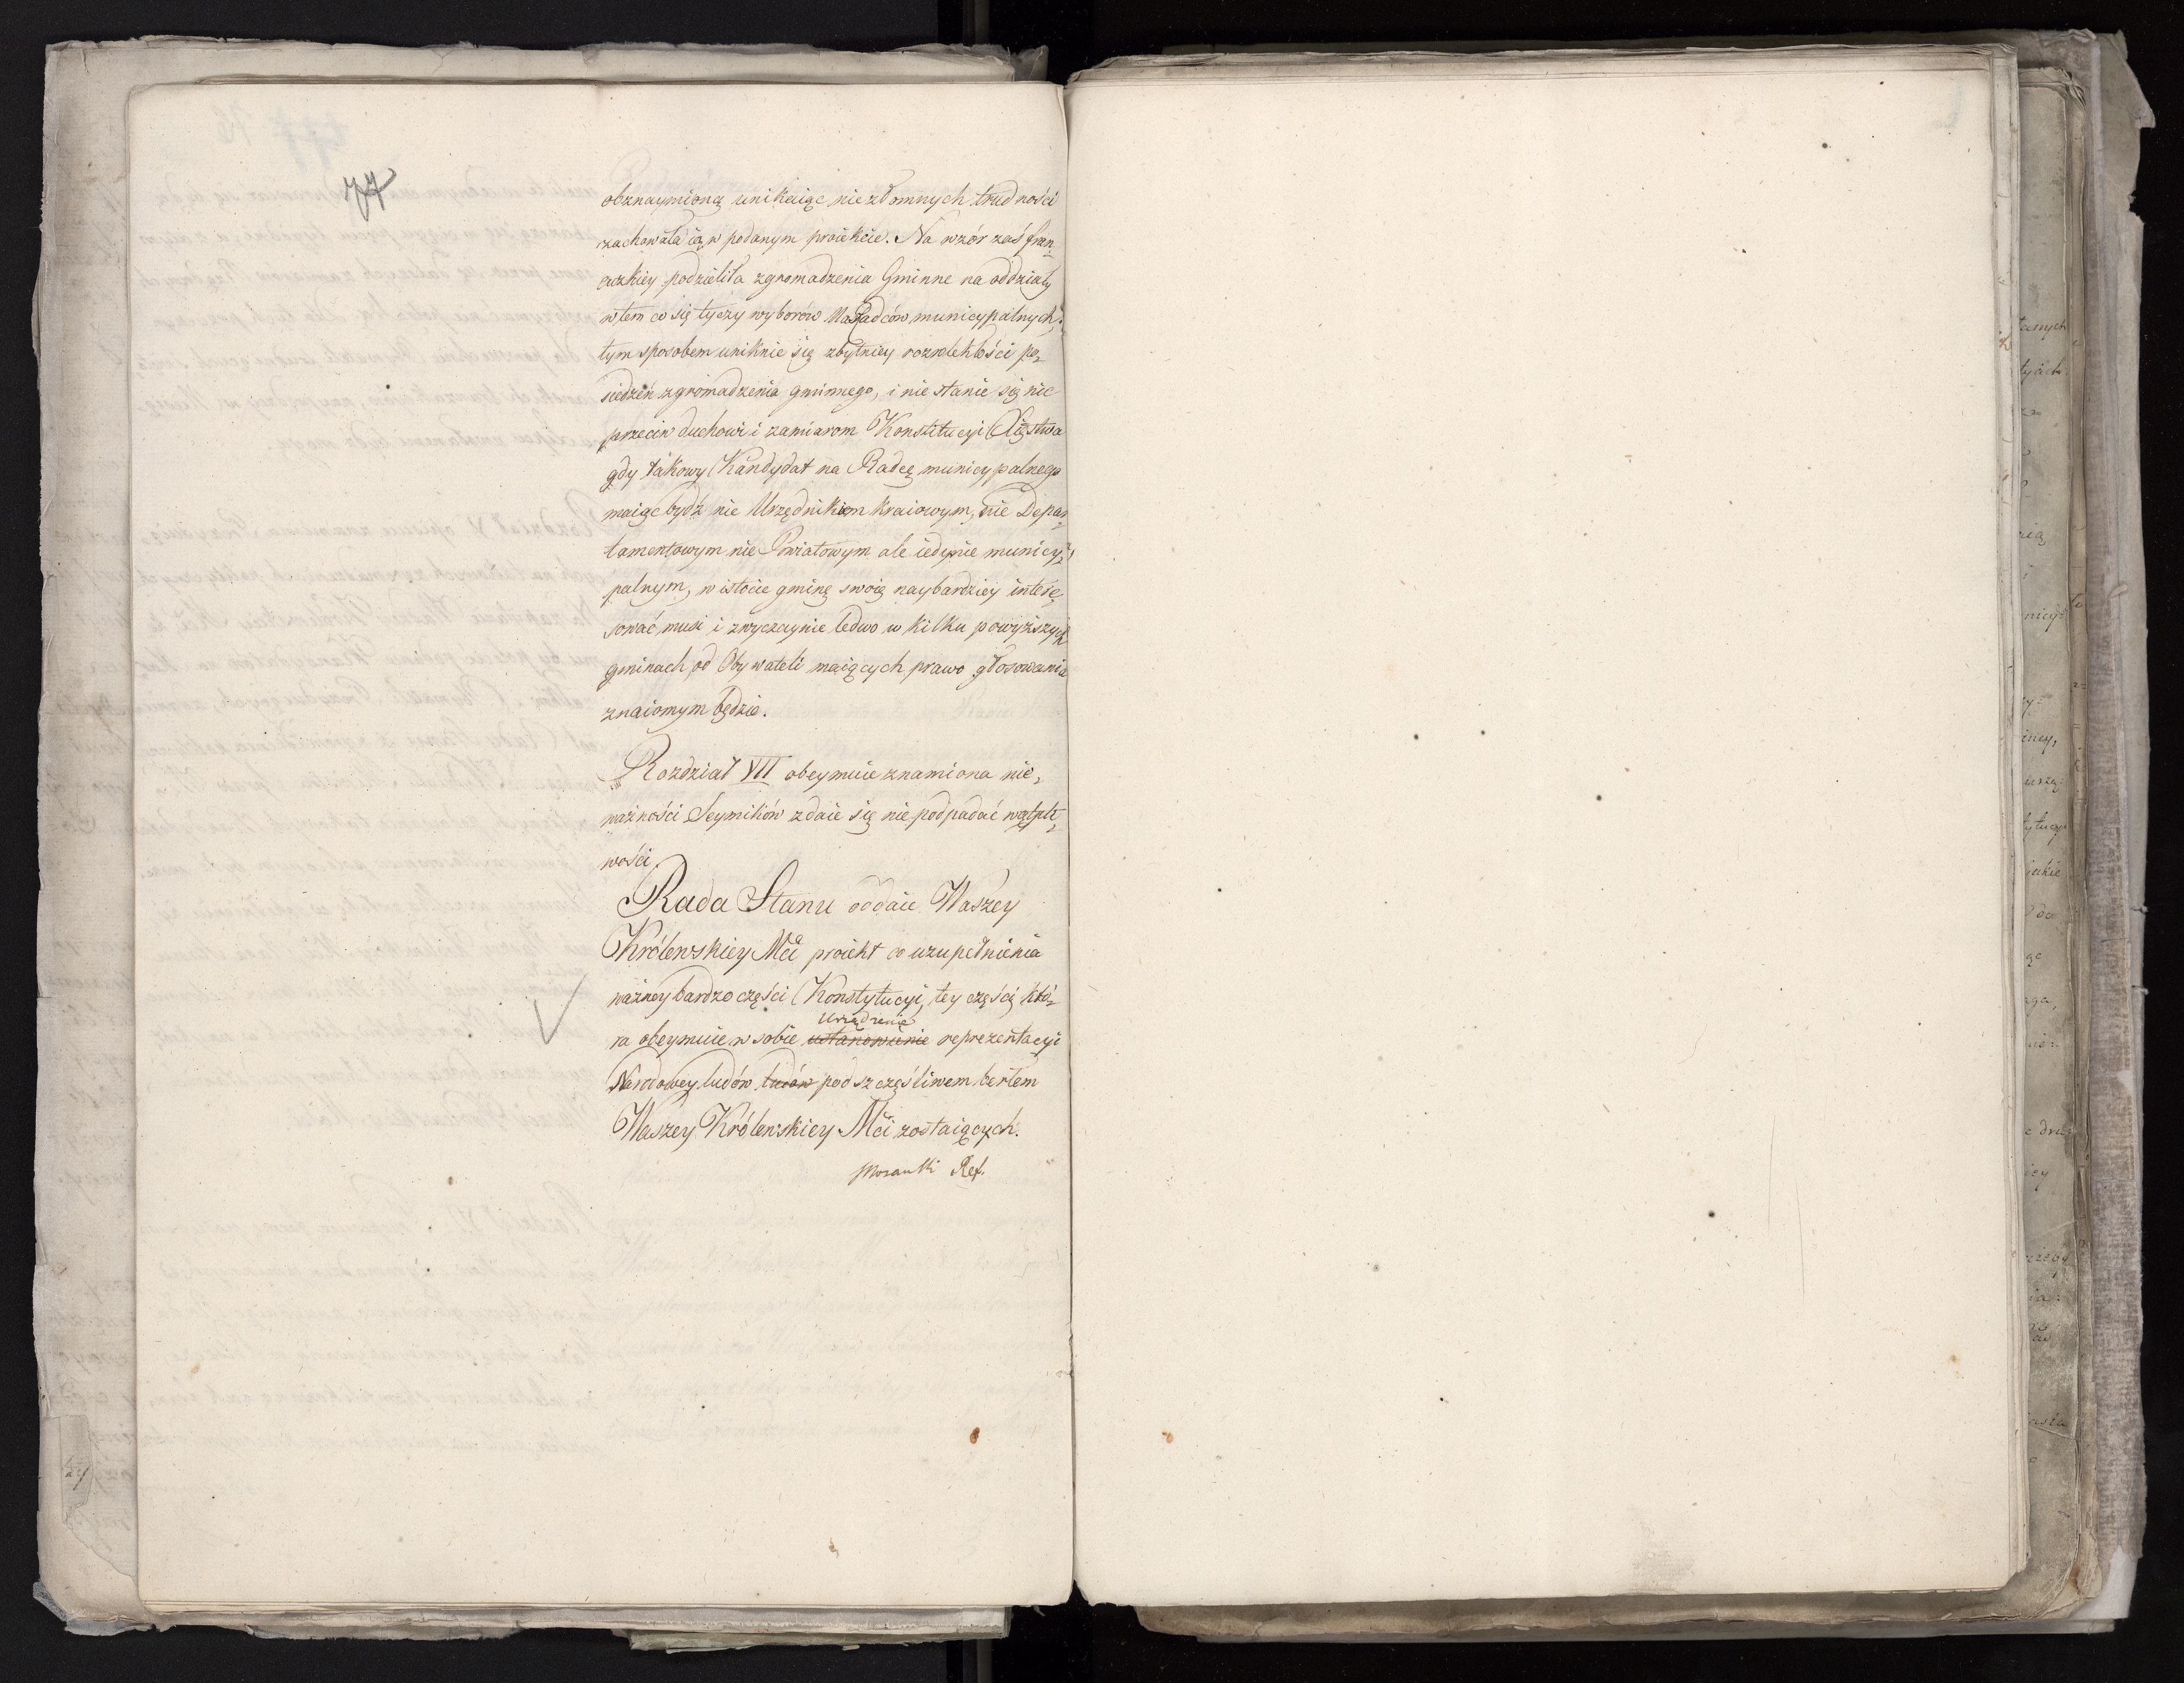 77
obznaymioną unikaiąc niezłomnych trudności
zachowała ią w podanym proiekcie. Na wzór zaś fran=
cuzkiey podzieliła zgromadzenia Gminne na oddziały
w tem co się tyczy wyborów Radców municypalnych;
tym sposobem uniknie się zbytniey rozwlekłości po=
siedzeń zgromadzenia gminnego, i nie stanie się nic
przeciw duchowi i zamiarom Konstitucyi Xięstwa
gdy takowy Kandydat na Radcę municypalnego
maiąc bydź nie Urzędnikiem kraiowym, nie Depar=
tamentowym nie Powiatowym ale iedynie municy=
palnym, w istocie gminę swoią naybardziey intere=
sować musi i zwyczaynie ledwo w kilku powyższych
gminach od Obywateli maiących prawo głosowania
znaiomym będzie.
Rozdział VII obeymuie znamiona nie=
ważności Seymików zdaie się nie podpadać wątpli=
wości.
Rada Stanu oddaie Waszey
Królewskiey Mci proiekt do uzupełnienia
ważney bardzo części Konstytucyi, tey części któ=
Urządzenie
ra obeymuie w sobie ustanowienie reprezentacyi
Narodowey ludów ludów pod szczęśliwem berłem
Waszey Królewskiey Mci zostaiących.
Morawski Ref.